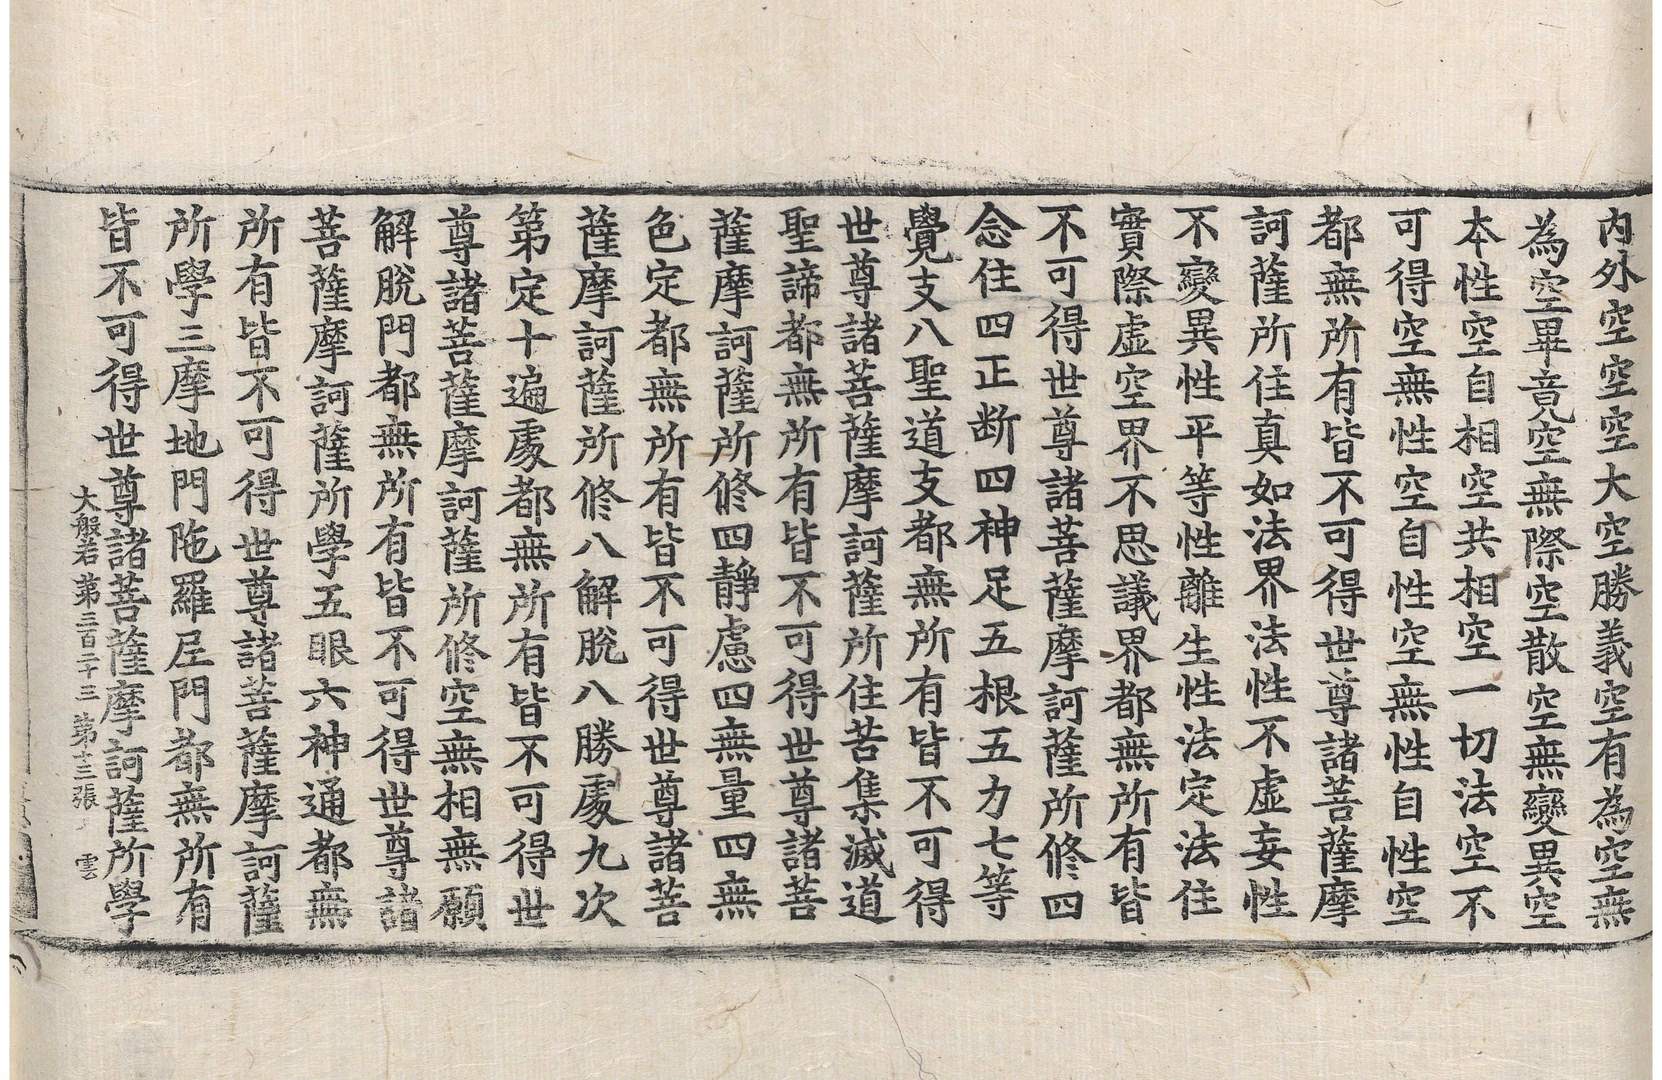 内外空空空大空勝義空有為空無
為空畢竟空無際空散空無變異空
本性空自相空共相空一切法空不
可得空無性空自性空無性自性空
都無所有皆不可得世尊諸菩薩摩
訶薩所住真如法界法性不虛妄性
不變異性平等性離生性法定法住
實際虛空界不思議界都無所有皆
不可得世尊諸菩薩摩訶薩所修四
念住四正断四神足五根五力七等
覺支八聖道支都無所有皆不可得
世尊諸菩薩摩訶薩所住苦集滅道
聖諦都無所有皆不可得世尊諸菩
薩摩訶薩所修四靜慮四無量四無
色定都無所有皆不可得世尊諸菩
薩摩訶薩所修八解脫八勝處九次
第定十遍處都無所有皆不可得世
尊諸菩薩摩訶薩所修空無相無願
解脫門都無所有皆不可得世尊諸
菩薩摩訶薩所學五眼六神通都無
所有皆不可得世尊諸菩薩摩訶薩
所學三摩地門陁羅尼門都無所有
皆不可得世尊諸菩薩摩訶薩所學
大般若第三百二十三 第十三張 雲